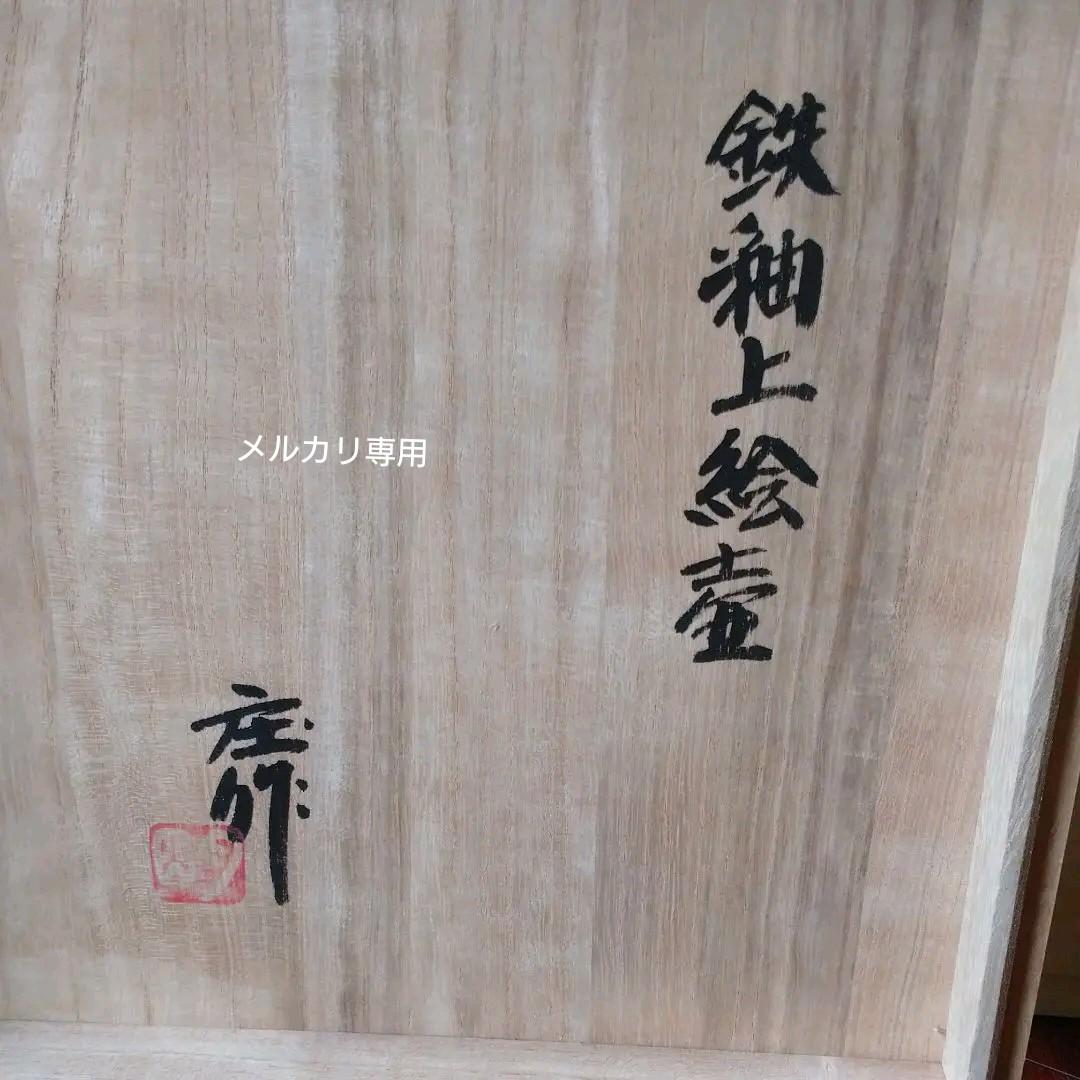 鉄釉上絵壷
メルカリ専用
庄作